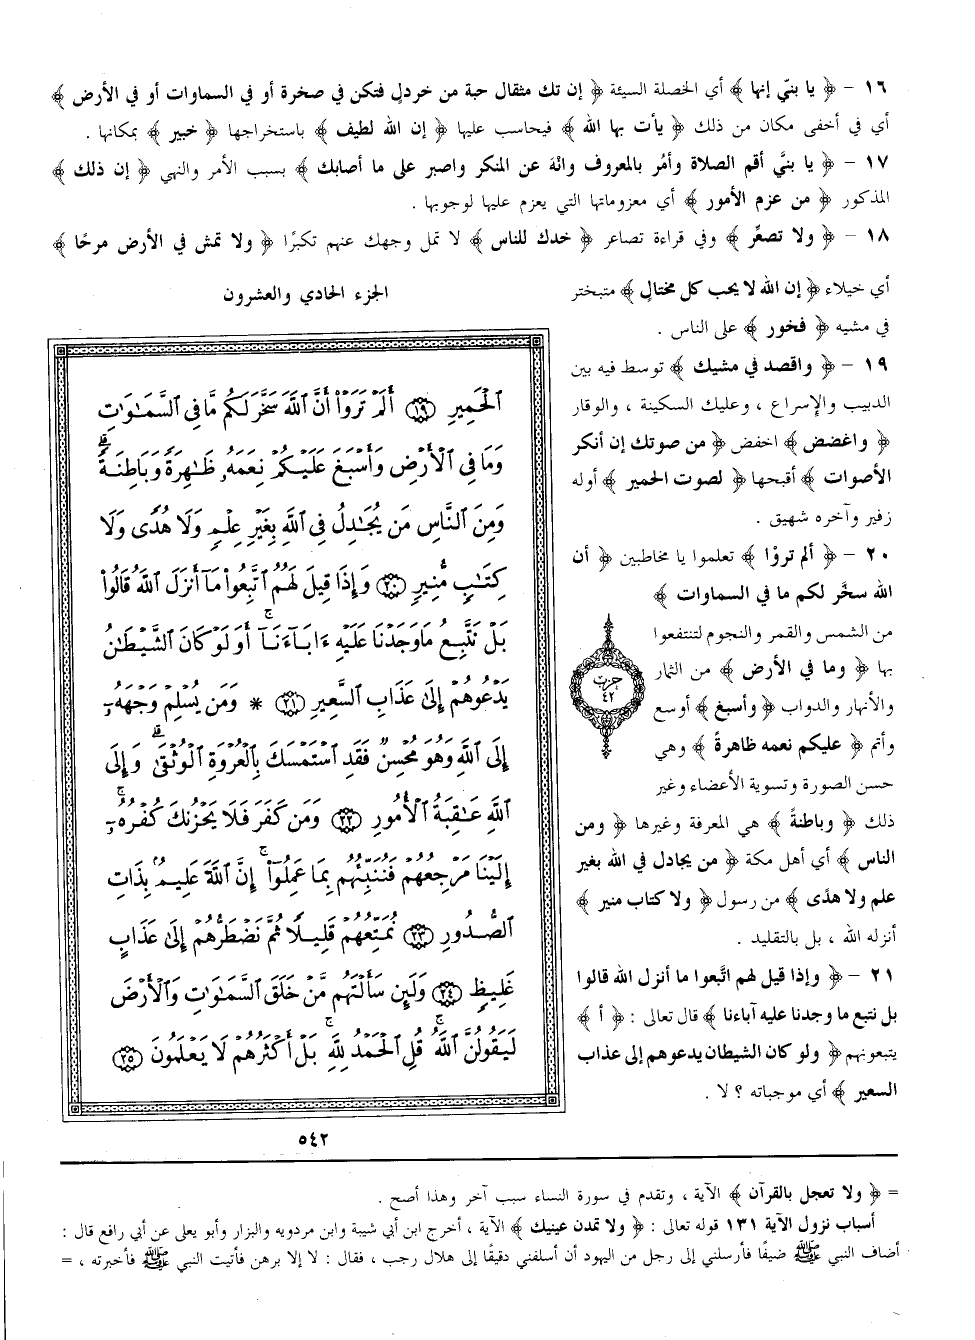 ١٦ - ﴿ يا بنيّ إنها ﴾ أي الخصلة السيئة ﴿ إن تك مثقال حبة من خردلٍ فتكن في صخرة أو في السماوات أو في الأرض ﴾
أي في أخفى مكان من ذلك ﴿ يأت بها الله ﴾ فيحاسب عليها ﴿ إن الله لطيف ﴾ باستخراجها ﴿ خبير ﴾ بمكانها .
١٧ - ﴿ يا بنيَّ أقم الصلاة وأمُر بالمعروف وانْهَ عن المنكر واصبر على ما أصابك ﴾ بسبب الأمر والنهي ﴿ إن ذلك ﴾
المذكور ﴿ من عزم الأمور ﴾ أي معزوماتها التي يعزم عليها لوجوبها .
١٨ - ﴿ ولا تصعِّر ﴾ وفي قراءة تصاعر ﴿ خدك للناس ﴾ لا تمل وجهك عنهم تكبرًا ﴿ ولا تمش في الأرض مرحًا ﴾
أي خيلاء ﴿ إن الله لا يحب كل مختالٍ ﴾ متبختر
في مشيه ﴿ فخور ﴾ على الناس .
١٩ - ﴿ واقصد في مشيك ﴾ توسط فيه بين
الدبيب والإسراع ، وعليك السكينة ، والوقار
﴿ واغضض ﴾ اخفض ﴿ من صوتك إن أنكر
الأصوات ﴾ أقبحها ﴿ لصوت الحمير ﴾ أوله
زفير وآخره شهيق .
٢٠ - ﴿ ألم تروْا ﴾ تعلموا يا مخاطبين ﴿ أن
الله سخَّر لكم ما في السماوات ﴾
من الشمس والقمر والنجوم لتنتفعوا
بها ﴿ وما في الأرض ﴾ من الثمار
والأنهار والدواب ﴿ وأسبغ ﴾ أوسع
وأتم ﴿ عليكم نعمه ظاهرةً ﴾ وهي
حسن الصورة وتسوية الأعضاء وغير
ذلك ﴿ وباطنةً ﴾ هي المعرفة وغيرها ﴿ ومن
الناس ﴾ أي أهل مكة ﴿ من يجادل في الله بغير
علم ولا هدًى ﴾ من رسول ﴿ ولا كتاب منير ﴾
أنزله الله ، بل بالتقليد .
٢١ - ﴿ وإذا قيل لهم اتَّبعوا ما أنزل الله قالوا
بل نتبع ما وجدنا عليه آباءنا ﴾ قال تعالى : ﴿ أ ﴾
يتبعونهم ﴿ ولو كان الشيطان يدعوهم إلى عذاب
السعير ﴾ أي موجباته ؟ لا .
حزب
٤٢
الجزء الحادي والعشرون
ٱلْحَمِيرِ ١٩ أَلَمْ تَرَوْا۟ أَنَّ ٱللَّهَ سَخَّرَ لَكُم مَّا فِى ٱلسَّمَٰوَٰتِ
وَمَا فِى ٱلْأَرْضِ وَأَسْبَغَ عَلَيْكُمْ نِعَمَهُۥ ظَٰهِرَةً وَبَاطِنَةً ۗ
وَمِنَ ٱلنَّاسِ مَن يُجَٰدِلُ فِى ٱللَّهِ بِغَيْرِ عِلْمٍ وَلَا هُدًى وَلَا
كِتَٰبٍ مُّنِيرٍ ٢٠ وَإِذَا قِيلَ لَهُمُ ٱتَّبِعُوا۟ مَآ أَنزَلَ ٱللَّهُ قَالُوا۟
بَلْ نَتَّبِعُ مَا وَجَدْنَا عَلَيْهِ ءَابَآءَنَآ ۚ أَوَلَوْ كَانَ ٱلشَّيْطَٰنُ
يَدْعُوهُمْ إِلَىٰ عَذَابِ ٱلسَّعِيرِ ٢١ * وَمَن يُسْلِمْ وَجْهَهُۥٓ
إِلَى ٱللَّهِ وَهُوَ مُحْسِنٌ فَقَدِ ٱسْتَمْسَكَ بِٱلْعُرْوَةِ ٱلْوُثْقَىٰ ۗ وَإِلَى
ٱللَّهِ عَٰقِبَةُ ٱلْأُمُورِ ٢٢ وَمَن كَفَرَ فَلَا يَحْزُنكَ كُفْرُهُۥٓ ۚ
إِلَيْنَا مَرْجِعُهُمْ فَنُنَبِّئُهُم بِمَا عَمِلُوٓا۟ ۚ إِنَّ ٱللَّهَ عَلِيمٌۢ بِذَاتِ
ٱلصُّدُورِ ٢٣ نُمَتِّعُهُمْ قَلِيلًا ثُمَّ نَضْطَرُّهُمْ إِلَىٰ عَذَابٍ
غَلِيظٍ ٢٤ وَلَئِن سَأَلْتَهُم مَّنْ خَلَقَ ٱلسَّمَٰوَٰتِ وَٱلْأَرْضَ
لَيَقُولُنَّ ٱللَّهُ ۚ قُلِ ٱلْحَمْدُ لِلَّهِ ۚ بَلْ أَكْثَرُهُمْ لَا يَعْلَمُونَ ٢٥
٥٤٢
= ﴿ ولا تعجل بالقرآن ﴾ الآية ، وتقدم في سورة النساء سبب آخر وهذا أصح .
أسباب نزول الآية ١٣١ قوله تعالى : ﴿ ولا تمدن عينيك ﴾ الآية ، أخرج ابن أبي شيبة وابن مردويه والبزار وأبو يعلى عن أبي رافع قال :
أضاف النبي ﷺ ضيفًا فأرسلني إلى رجل من اليهود أن أسلفني دقيقًا إلى هلال رجب ، فقال : لا إلا برهن فأتيت النبي ﷺ فأخبرته ، =